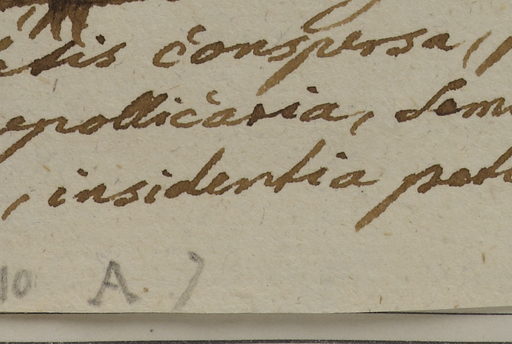 conspersa,
pollicaria, Sem
, insidentia pet
10 A.